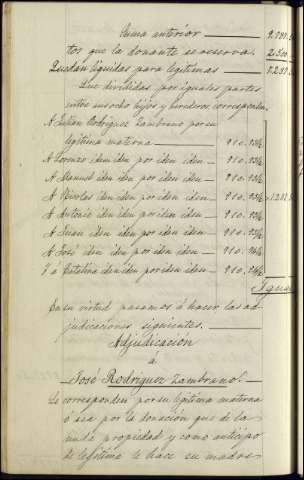 Suma anterior — 9.787.5
tos que la donante se reserva. 2.500
Quedan líquidas para legítimas — 7.287.5
Que divididas por iguales partes
entre sus ocho hijos y herederos corresponden
A Julian Rodriguez Zambrano por su
legítima materna — 910.93¾
A Lorenzo iden iden por iden iden — 910.93¾
A Manuel iden iden por iden iden — 910.93¾
A Nicolas iden iden por iden iden — 910.93¾
A Antonio iden iden por iden iden — 910.93¾
A Juan iden iden por iden iden — 910.93¾
A José iden iden por iden iden — 910.93¾
Y á Catalina iden iden por iden iden — 910.93¾
Igual
En su virtud pasamos á hacer las ad-
judicaciones siguientes.
Adjudicación
á
José Rodriguez Zambrano.
Le corresponden por su legítima materna
ó sea por la donación que de la
nuda propiedad y como anticipo
de legítima le hace su madre